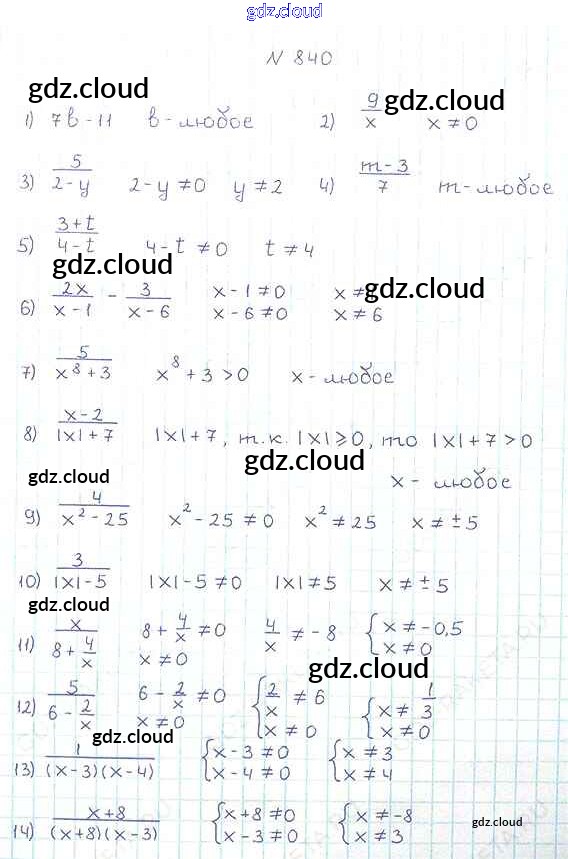 gdz.cloud
N 840
gdz.cloud gdz.cloud
1) 7b - 11 b - любое 2) 9/x x ≠ 0
3) 5/(2 - y) 2 - y ≠ 0 y ≠ 2 4) (m - 3)/7 m - любое
5) (3 + t)/(4 - t) 4 - t ≠ 0 t ≠ 4
gdz.cloud gdz.cloud
6) 2x/(x - 1) - 3/(x - 6) x - 1 ≠ 0 x ≠
x - 6 ≠ 0 x ≠ 6
7) 5/(x⁸ + 3) x⁸ + 3 > 0 x - любое
8) (x - 2)/(|x| + 7) |x| + 7, т.к. |x| ⩾ 0, то |x| + 7 > 0
gdz.cloud gdz.cloud
x - любое
9) 4/(x² - 25) x² - 25 ≠ 0 x² ≠ 25 x ≠ ± 5
10) 3/(|x| - 5) |x| - 5 ≠ 0 |x| ≠ 5 x ≠ ± 5
gdz.cloud
11) x/(8 + 4/x) 8 + 4/x ≠ 0 4/x ≠ - 8 { x ≠ - 0,5
x ≠ 0 x ≠ 0
gdz.cloud
12) 5/(6 - 2/x) 6 - 2/x ≠ 0 { 2/x ≠ 6 { x ≠ 1/3
x ≠ 0 x ≠ 0 x ≠ 0
gdz.cloud
13) 1/((x - 3)(x - 4)) { x - 3 ≠ 0 { x ≠ 3
x - 4 ≠ 0 x ≠ 4
14) (x + 8)/((x + 8)(x - 3)) { x + 8 ≠ 0 { x ≠ -8
x - 3 ≠ 0 x ≠ 3
gdz.cloud